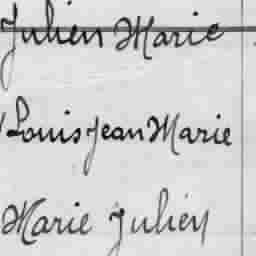 Julien Marie
Louis Jean Marie
Marie Julien